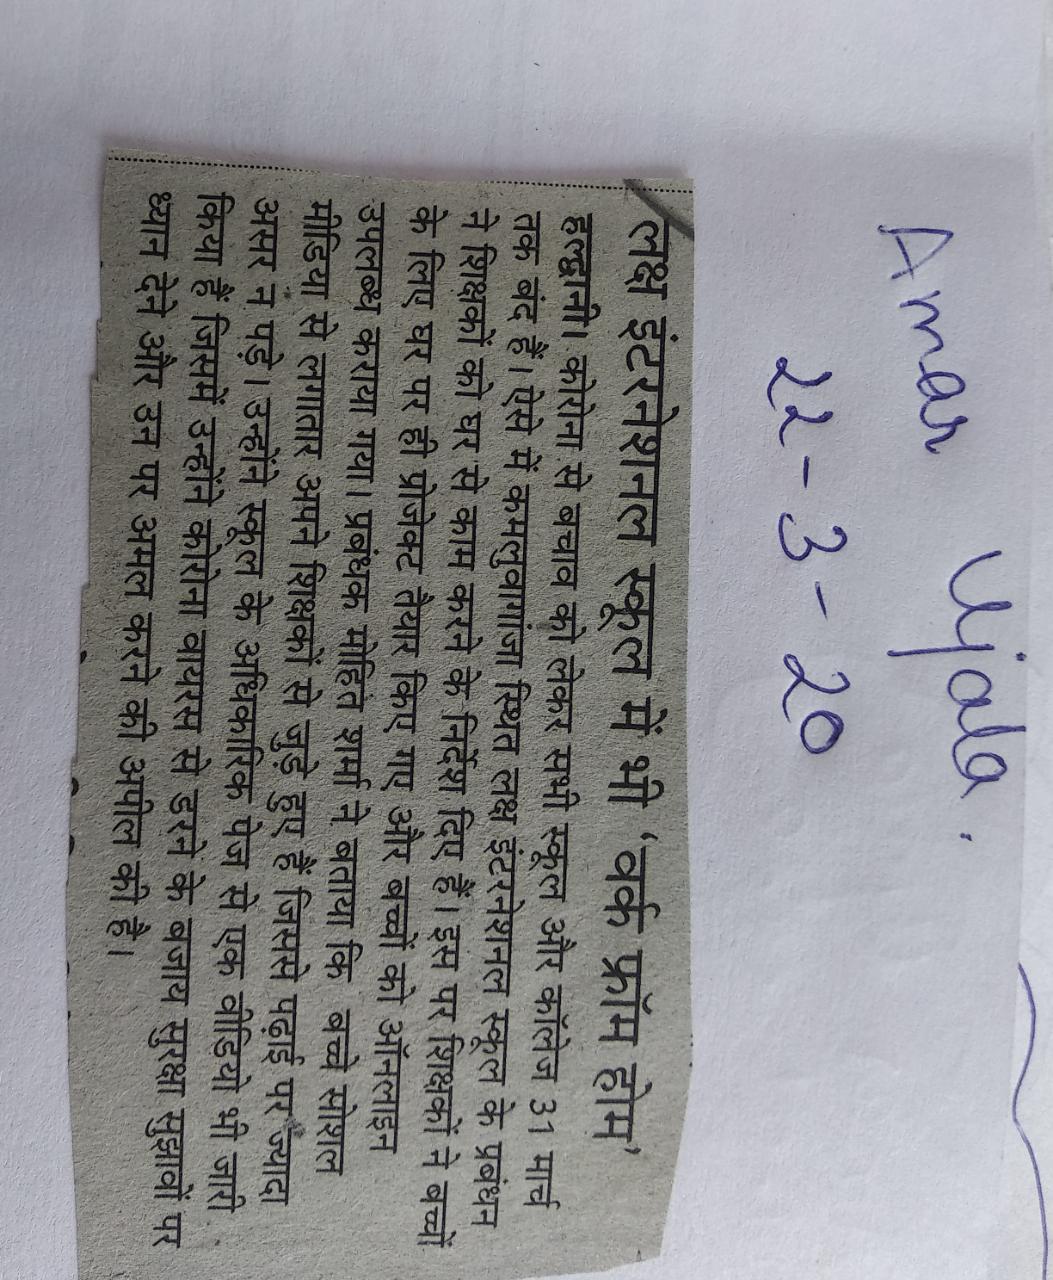 Amar Ujala.
22-3-20
लक्ष इंटरनेशनल स्कूल में भी ‘वर्क फ्रॉम होम’
हल्द्वानी। कोरोना से बचाव को लेकर सभी स्कूल और कॉलेज 31 मार्च
तक बंद हैं। ऐसे में कमलुवागांजा स्थित लक्ष इंटरनेशनल स्कूल के प्रबंधन
ने शिक्षकों को घर से काम करने के निर्देश दिए हैं। इस पर शिक्षकों ने बच्चों
के लिए घर पर ही प्रोजेक्ट तैयार किए गए और बच्चों को ऑनलाइन
उपलब्ध कराया गया। प्रबंधक मोहित शर्मा ने बताया कि बच्चे सोशल
मीडिया से लगातार अपने शिक्षकों से जुड़े हुए हैं जिससे पढ़ाई पर ज्यादा
असर न पड़े। उन्होंने स्कूल के अधिकारिक पेज से एक वीडियो भी जारी
किया हैं जिसमें उन्होंने कोरोना वायरस से डरने के बजाय सुरक्षा सुझावों पर
ध्यान देने और उन पर अमल करने की अपील की है।